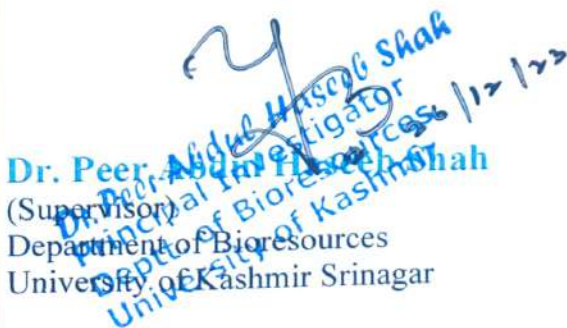 Dr. Peer Abdul Haseeb Shah
Principal Investigator
Deptt. of Bioresources
University of Kashmir
26/12/23
Dr. Peer Abdul Haseeb Shah
(Supervisor)
Department of Bioresources
University of Kashmir Srinagar